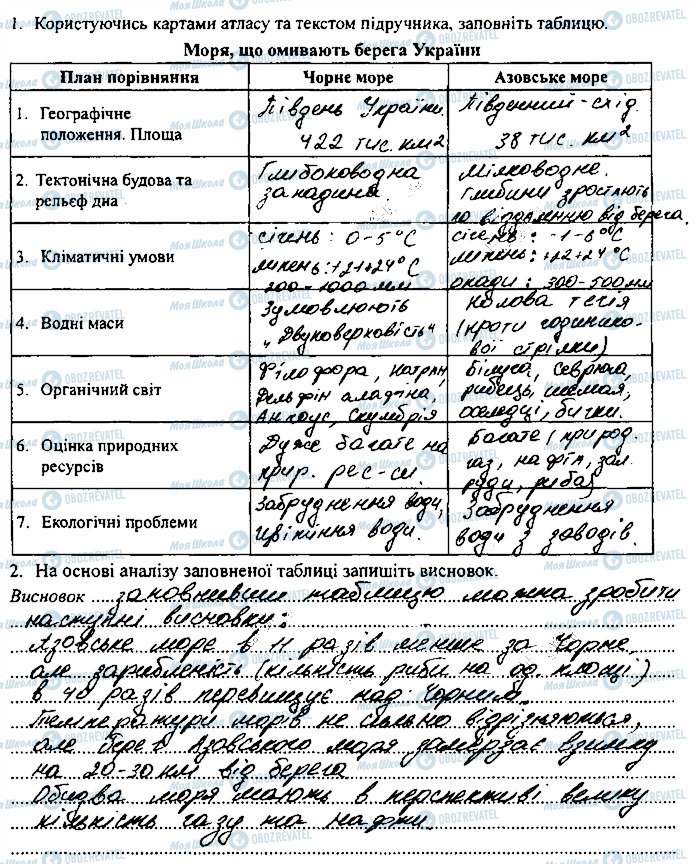 1. Користуючись картами атласу та текстом підручника, заповніть таблицю.
Моря, що омивають берега України
План порівняння Чорне море Азовське море
1. Географічне положення. Площа
Південь України. 422 тис. км2
Південний-схід. 38 тис. км2
2. Тектонічна будова та рельєф дна
Глибоководна западина.
Мілководне. Глибини зростають по віддаленню від берега.
3. Кліматичні умови
січень: 0-5°C
липень: +21+24°C
200-1000 мм
січень: -1-6°C
липень: +22+24°C
опади: 300-500 мм
4. Водні маси
Зумовлюють „Двуповерховість"
Колова течія (проти годинико-
вої стрілки)
5. Органічний світ
Філофора, катран,
Дельфін
Анчоус, Скумбрія
Білуга, севрюга,
рибець, шемая,
оселедці, бички.
6. Оцінка природних ресурсів
Дуже багате на
прир. рес-си.
Багате (природ.
газ, нафта, зал.
руди, риба)
7. Екологічні проблеми
Забруднення води,
цвітіння води.
Забруднення
води з заводів.
2. На основі аналізу заповненої таблиці запишіть висновок.
Висновок заповнивши таблицю можна зробити
наступні висновки:
Азовське море в 11 разів менше за Чорне,
але зарибленість (кількість риби на од. площі)
в 40 разів перевищує над Чорним.
Температури морів не сильно відрізняються,
але берег Азовського моря замерзає взимку
на 20-30 км від берега
Обидва моря мають в перспективі велику
кількість газу та нафти.